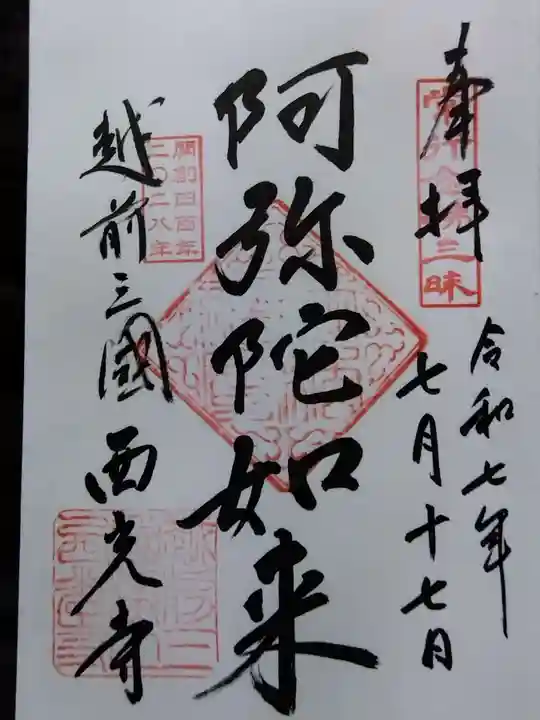 奉拝
令和七年
七月十七日
阿弥陀如来
開創四百年
二〇二八年
越前三國 西光寺